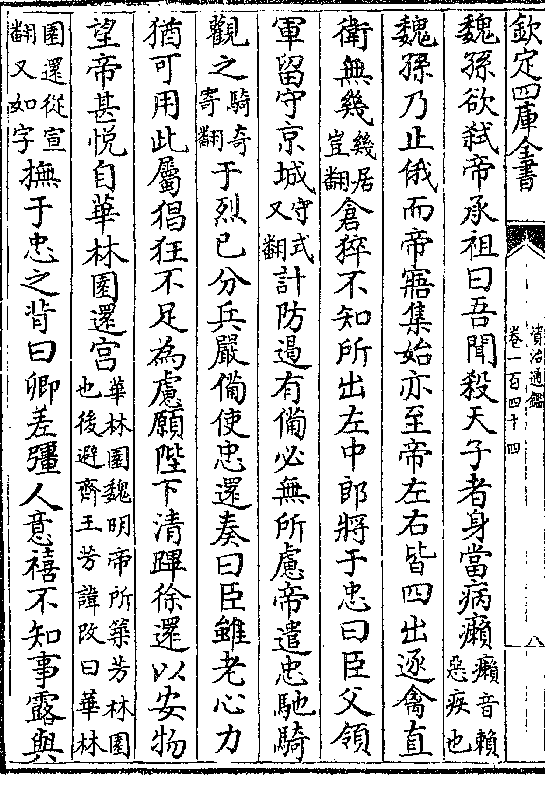 欽定四庫全書
資治通鑑
卷一百四十四
八
魏孫欲弑帝承祖曰吾聞殺天子者身當病癩癩音賴惡疾也
魏孫乃止俄而帝寤集始亦至帝左右皆四出逐禽直
衛無幾幾居豈翻倉猝不知所出左中郎將于忠曰臣父領
軍留守京城守式又翻計防遏有備必無所慮帝遣忠馳騎
觀之騎奇寄翻于烈已分兵嚴備使忠還奏曰臣雖老心力
猶可用此屬猖狂不足為慮願陛下清蹕徐還以安物
望帝甚悅自華林園還宮華林園魏明帝所築芳林園也後避齊王芳諱改曰華林
園還從宣翻又如字撫于忠之背曰卿差彊人意禧不知事露與